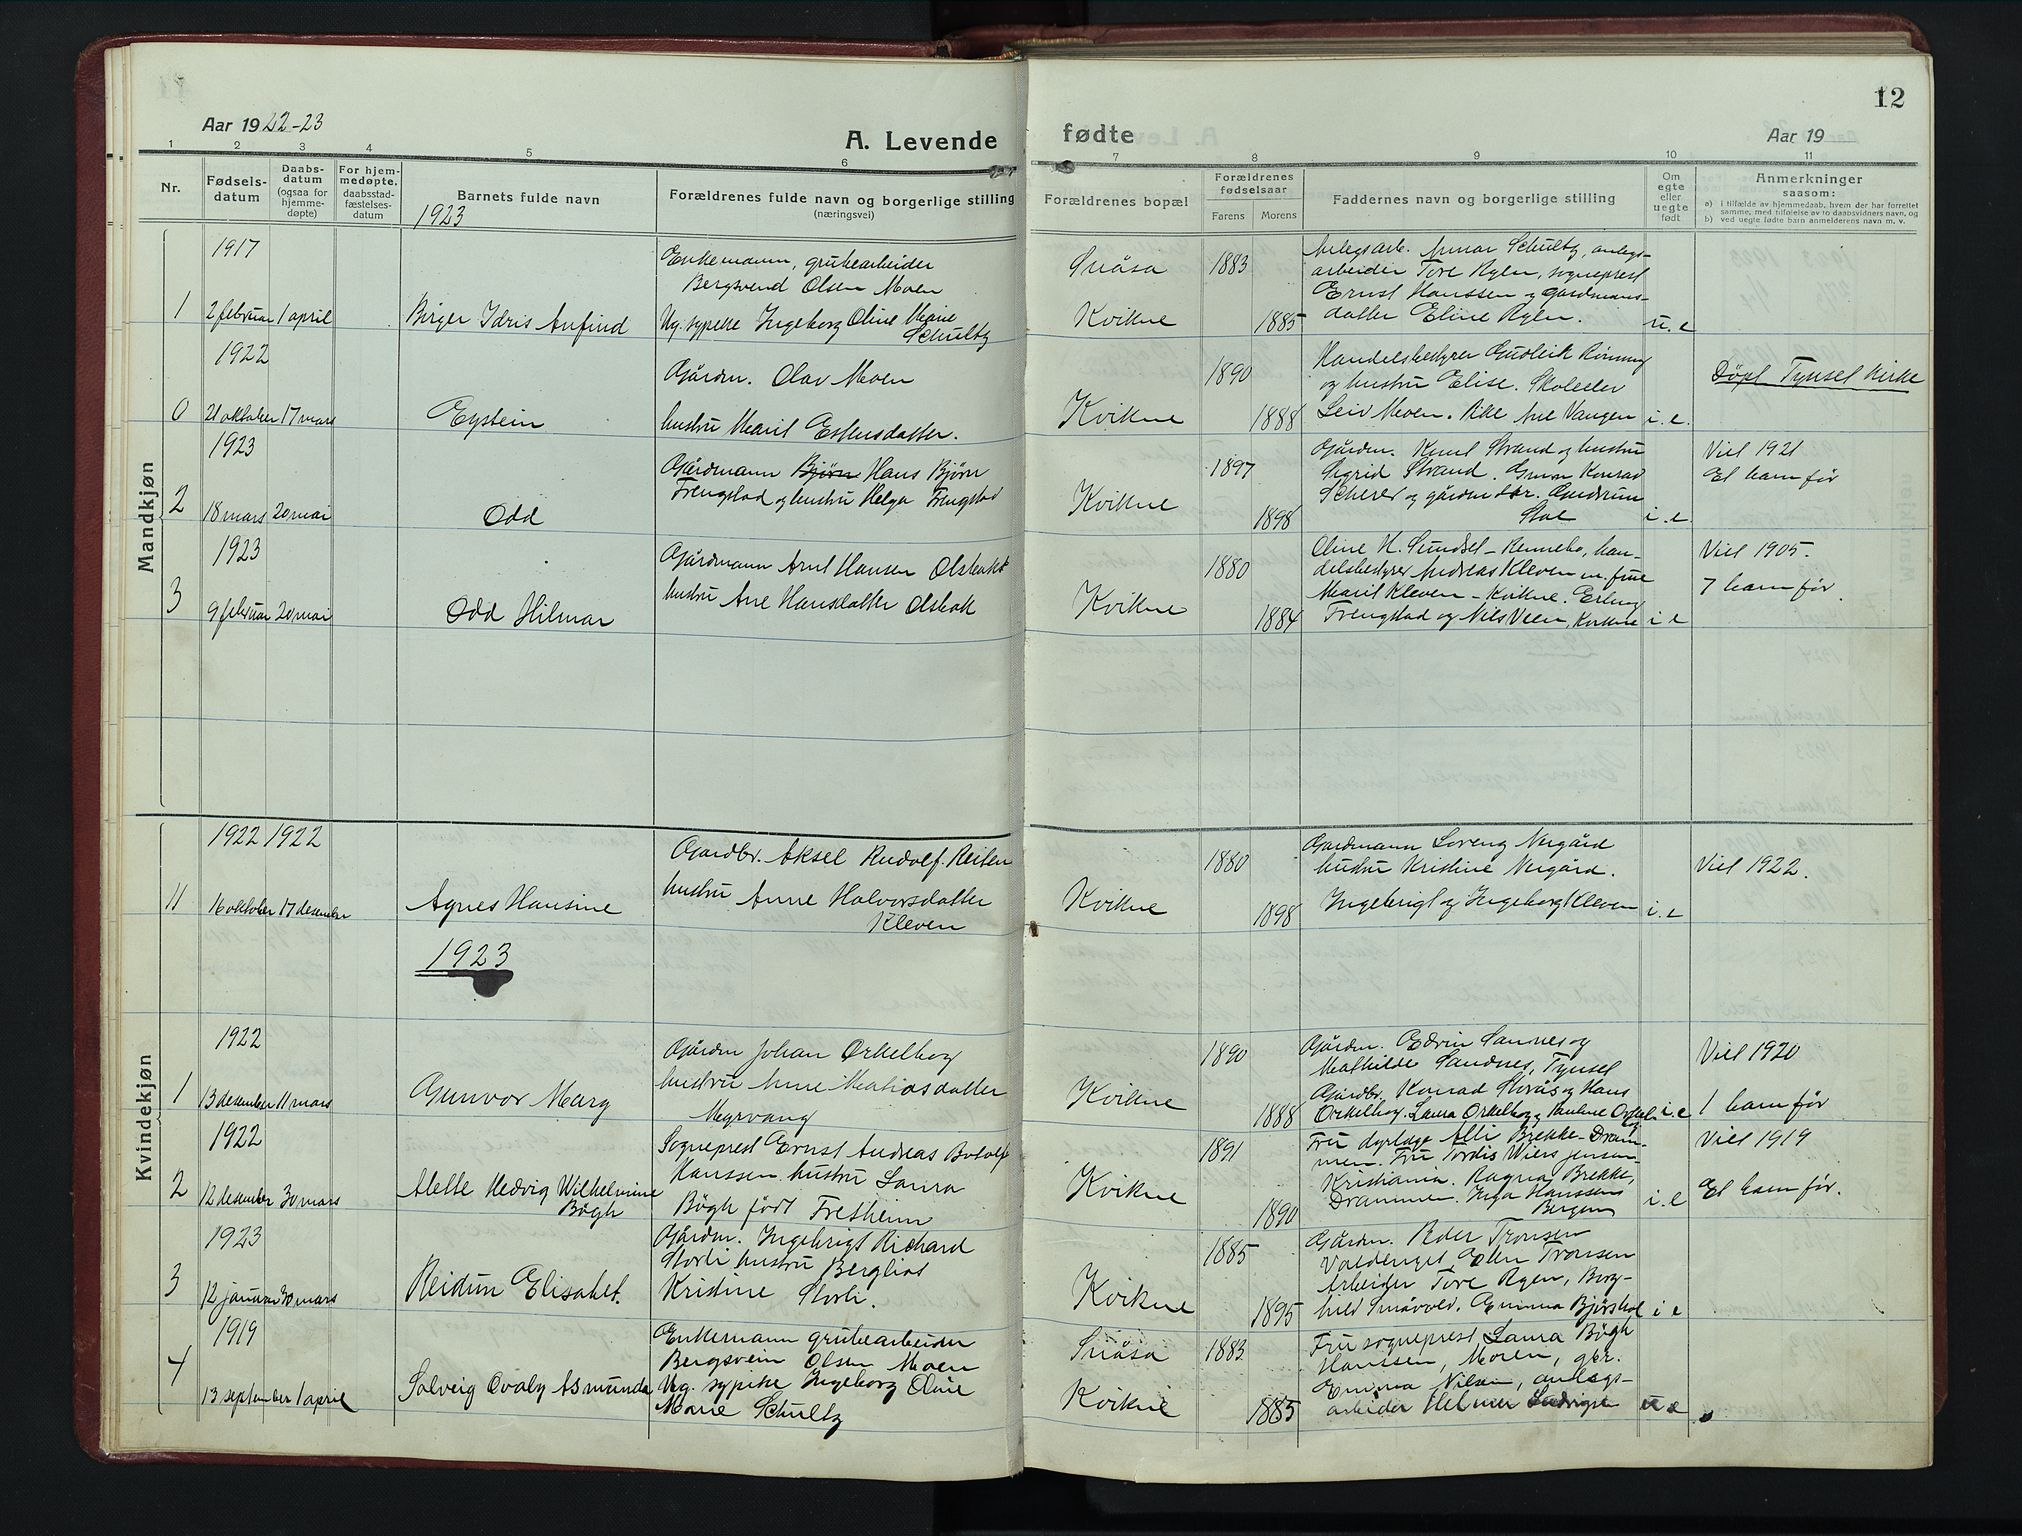 12
Aar 1922-23
A. Levende fødte
Aar 19
1 2 3 4 5 6 7 8 9 10 11
Nr.
Fødsels-
datum
Daabs-
datum
(ogsaa for
hjemme-
døpte)
For hjem-
medøpte,
daabsstad-
fæstelses-
datum
Barnets fulde navn
1923
Forældrenes fulde navn og borgerlige stilling
(næringsvei)
Forældrenes bopæl
Forældrenes
fødselsaar
Farens
Morens
Faddernes navn og borgerlige stilling
Om
egte
eller
uegte
født
Anmerkninger
saasom:
a) i tilfælde av hjemmedaab, hvem der har forrettet
samme, med tilføielse av to daabsvidners navn, og
b) ved uegte fødte barn anmelderens navn m. v.
Mandkjøn
1
1917
2 februar 1 april
Birger Idris Anfind
Enkemann, grubearbeider
Bergsvend Olsen Moen
Ug. sypike Ingeborg Oline Marie
Schultz
Snåsa
Kvikne
1883
1885
Anlegsarb. Annar Schultz, anlegs-
arbeider Tore Rylen, sogneprest
Ernst Hanssen og gardmans-
datter Eline Rylen.
u. e
0
1922
21 oktober 17 mars
Eystein
Gårdm. Olav Moen
hustru Marit Estensdatter.
Kvikne
1890
1888
Handelsbestyrer Gudleik Rønning
og hustru Elise. Skoleelev
Leiv Moen. Pike Ane Vangen
i. e.
Døpt Tynset kirke
2
1923
18 mars 20 mai
Odd
Gårdmann Bjørn Hans Bjørn
Frengstad og hustru Helga Frengstad
Kvikne
1897
1898
Gårdm. Knut Strand og hustru
Sigrid Strand. Konrad
Scherer og gårdm dtr. Gudrun
Stai
i. e.
Viet 1921
Et barn før
3
1923
9 februar 20 mai
Odd Hilmar
Gårdmann Arnt Hansen Olsbakk
hustru Ane Hansdatter Olsbak
Kvikne
1880
1884
Oline H. Sundset - Rennebo, han-
delsbestyrer Andreas Kleven m. frue
Marit Kleven - Kvikne. Erling
Frengstad og Nils Veen, Kvikne
i e
Viet 1905.
7 barn før.
Kvindekjøn
11
1922 1922
16 oktober 17 desember
Agnes Hansine
Gardbr. Aksel Rudolf Reiten
hustru Anne Halvorsdatter
Kleven
Kvikne
1880
1898
Gardmann Loreng Nergård
hustru Kristine Nergård.
Ingebrigt og Ingeborg Kleven
i. e
Viet 1922.
1923
1
1922
13 desember 11 mars
Gunvor Marg
Gårdm Johan Orkelbog
hustru Anne Matiasdatter
Myrvang
Kvikne
1890
1888
Gårdm. Edvin Sannes og
Mathilde Sandnes, Tynset
Gardbr. Konrad Storås og Hans
Orkelbog. Laura Orkelbog og Pauline Orkelbog
i. e
Viet 1920
1 barn før
2
1922
12 desember 30 mars
Alette Hedvig Wilhelmine
Bøgh
Sogneprest Ernst Andreas Botolf
Hanssen hustru Laura
Bøgh født Fretheim
Kvikne
1891
1890
Fru dyrlæge Alli Brekke - Dram-
men. Fru Tordis Wiers Jensen
Kristiania. Ragna Brekke,
Drammen. Inga Hanssen
Bergen
i. e
Viet 1919
Et barn før.
3
1923
12 januar 30 mars
Reidun Elisabet.
Gårdm. Ingebrigt Richard
Storli hustru Bergliot
Kristine Storli.
Kvikne
1885
1895
Gårdm. Peder Tronsen
Voldenget, Tronsen
Arbeider Tore Rylen, Borg-
hild Småvold. Emma Bjørshol
i e
4
1919
13 september 1 april
Solveig Ovaly Asmunda
Enkemann grubearbeider
Bergsvein Olsen Moen
Ug. sypike Ingeborg Oline
Marie Schultz
Snåsa
Kvikne
1883
1885
Fru sogneprest Laura Bøgh
Hanssen, Moren, gbr.
Emma Nilsen, anlegs-
arbeider Helmer Ludvigsen
u. e